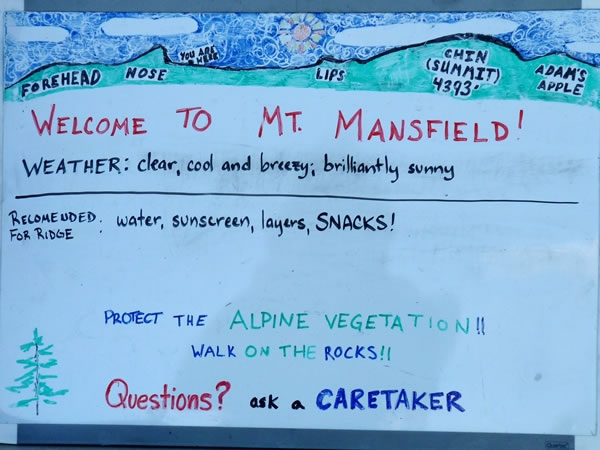 YOU ARE HERE
FOREHEAD NOSE LIPS CHIN (SUMMIT) 4393' ADAM'S APPLE
WELCOME TO MT. MANSFIELD!
WEATHER: clear, cool and breezy; brilliantly sunny
RECOMENDED FOR RIDGE: water, sunscreen, layers, SNACKS!
PROTECT THE ALPINE VEGETATION!!
WALK ON THE ROCKS!!
Questions? ask a CARETAKER